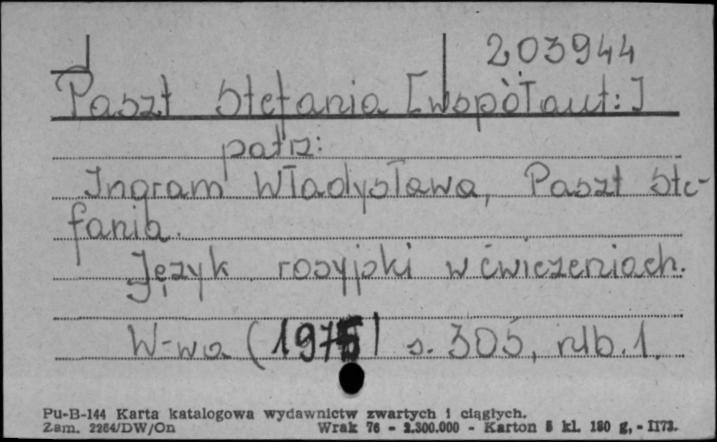 203944
Paszt Stefania [współaut:]
patrz:
Ingram Władysława, Paszt Ste-
fania.
Język rosyjski w ćwiczeniach.
W-wa (1975) s. 305, nlb. 1.
Pu-B-144 Karta katalogowa wydawnictw zwartych i ciągłych.
Zam. 2264/DW/On Wrak 76 - 2.300.000 - Karton 5 kl. 180 g, - II73.